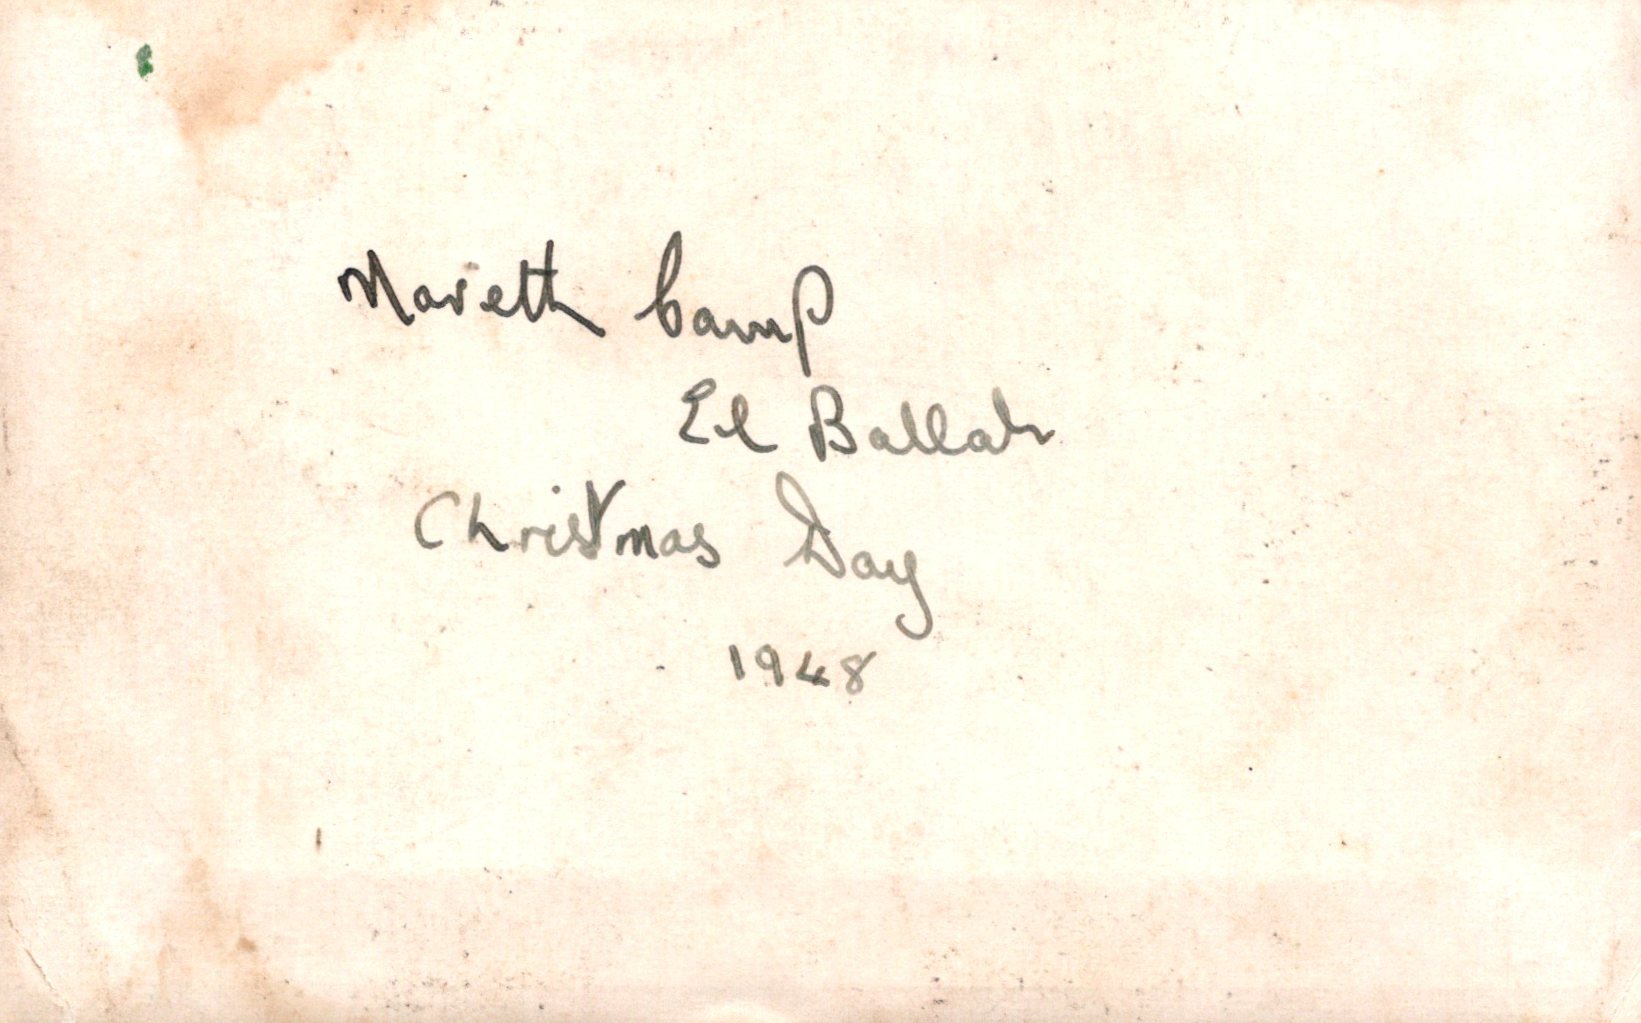 Mareth Camp
El Ballah
Christmas Day
1948